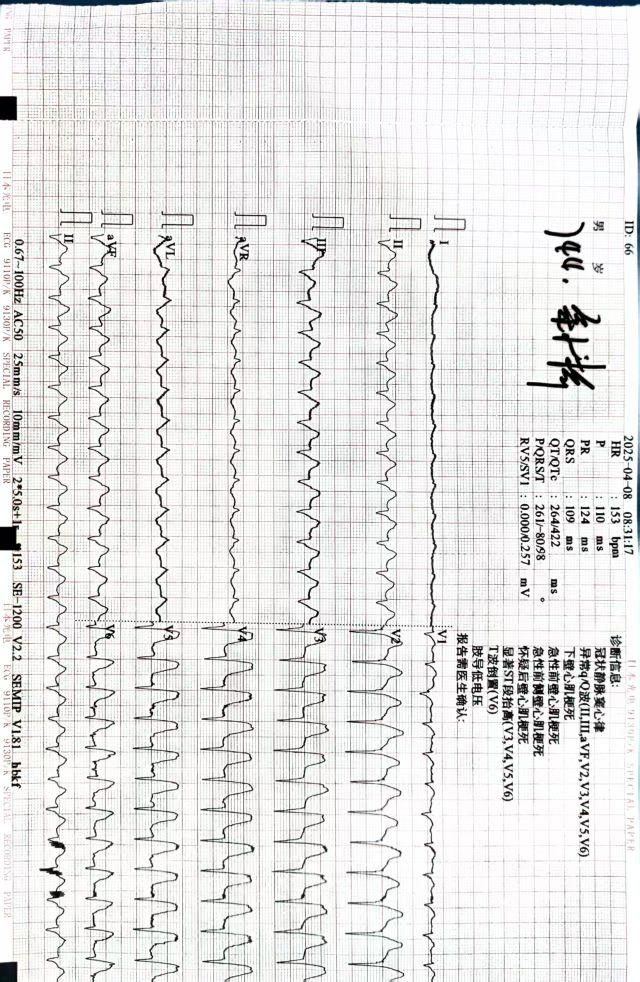 ID: 66
男 岁
2025-04-08 08:31:17
HR : 153 bpm
P : 110 ms
PR : 124 ms
QRS : 109 ms
QT/QTc : 264/422 ms
P/QRS/T : 261/-80/98 °
RV5/SV1 : 0.000/0.257 mV
诊断信息:
冠状静脉窦心律
异常q/Q波(II,III,aVF,V2,V3,V4,V5,V6)
下壁心肌梗死
急性前壁心肌梗死
急性前侧壁心肌梗死
怀疑后壁心肌梗死
显著ST段抬高(V3,V4,V5,V6)
T波倒置(V6)
肢导低电压
报告需医生确认:
I
II
III
aVR
aVL
aVF
II
V1
V2
V3
V4
V5
V6
0.67~100Hz AC50 25mm/s 10mm/mV 2*5.0s+1r 153 SE-1200 V2.2 SEMIP V181 hbkf
日本光电 ECG 9110P/K 9130P/K SPECIAL RECORDING PAPER
日本光电 ECG 9110P/K 9130P/K SPECIAL RECORDING PAPER